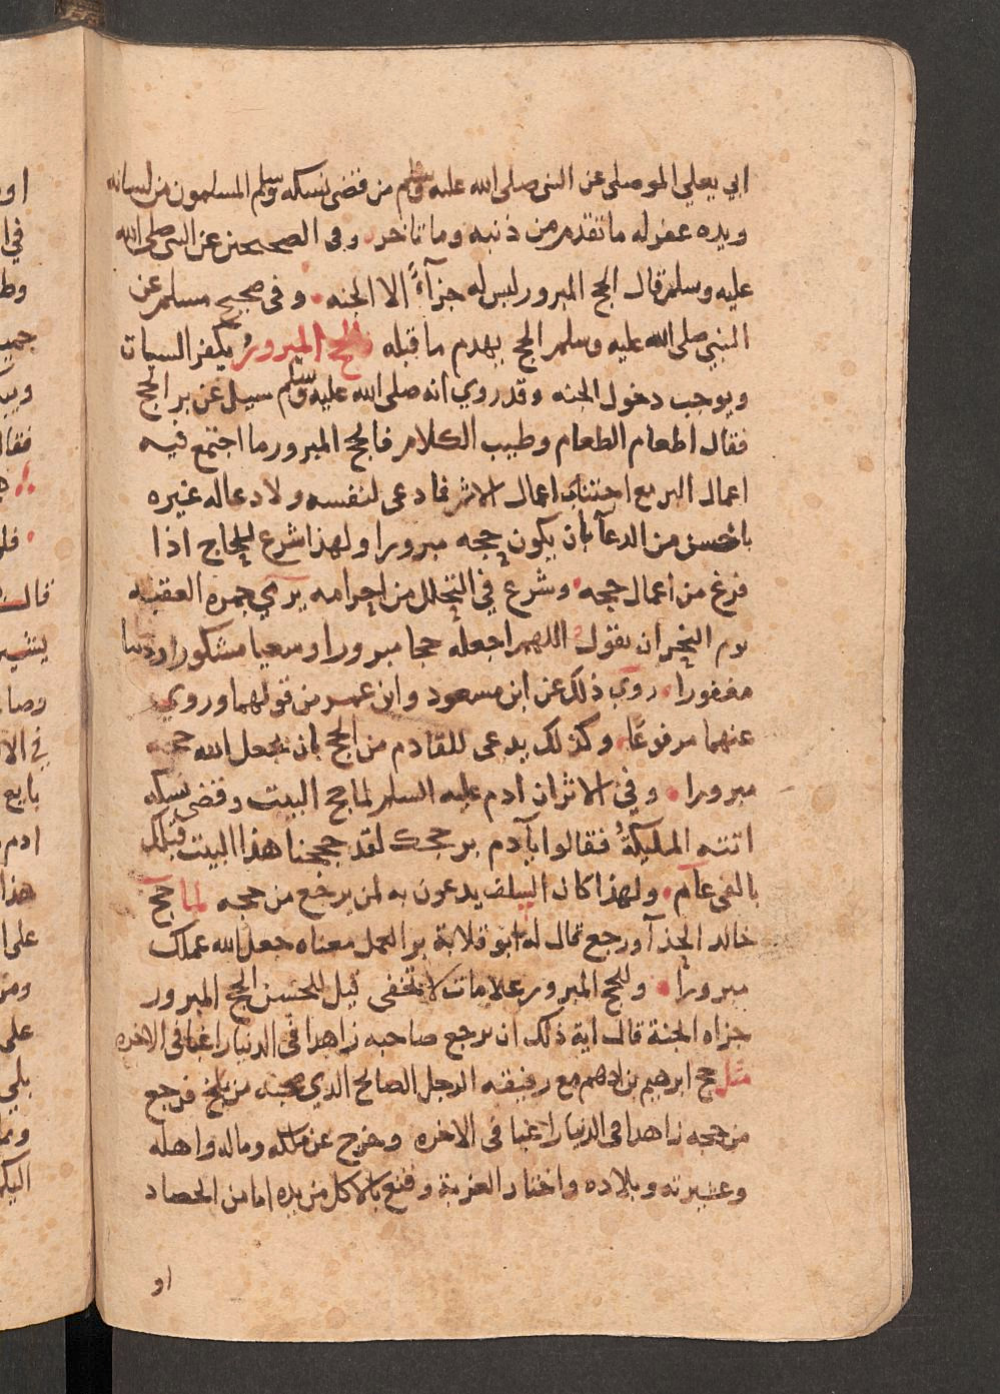 ابي يعلي الموصلي عن النبي صلى الله عليه وسلم من قضى نسكه وسلم المسلمون من لسانه
ويده غفر له ما تقدم من ذنبه وما تاخر وفى الصحيحين عن النبي صلى الله
عليه وسلم قال الحج المبرور ليس له جزآءً الا الجنه وفى صحيح مسلم عن
النبي صلى الله عليه وسلم الحج يهدم ما قبله فالحج المبرورُ يكفر السيات
ويوجب دخول الجنه وقد روي انه صلى الله عليه وسلم سيل عن بر الحج
فقال اطعام الطعام وطيب الكلام فالحج المبرور ما اجتمع فيه
اعمال البر مع اجتناب اعمال الاثم فما دعى لنفسه ولا دعا له غيره
باحسن من الدعآ بان يكون حجه مبرورا ولهذا شرع للحاج اذا
فرغ من اعمال حجه وشرع في التحلل من احرامه برمي جمره العقبه
يوم النحر ان يقول اللهم اجعله حجا مبرورا وسعيا مشكورا وذنبا
مغفورا روي ذلك عن ابن مسعود وابن عمر من قولهما وروي
عنهما مرفوعًا وكذلك يدعى للقادم من الحج بان يجعل الله حجه
مبرورا وفي الاثر ان ادم عليه السلم لما حج البيت وقضى نسكه
اتته المليكةُ فقالوا يآدم بر حجك لقد حججنا هذا البيت قبلك
بالفى عآم ولهذا كان السلف يدعون به لمن يرجع من حجه لما حج
خالد الحذآ ورجع قال له ابو قلابة بر العمل معناه جعل الله عملك
مبرورا وللحج المبرور علامات لا تخفى قيل للحسن الحج المبرور
جزاه الجنة قال اية ذلك ان يرجع صاحبه زاهدا فى الدنيا راغبا فى الاخره
مثل حج ابرهيم بن ادهم مع رفيقه الرجل الصالح الذي صحبه من بلخ فرجع
من حجه زاهدا فى الدنيا راغبا فى الاخره وخرج عن ملكه وماله واهله
وعشيرته وبلاده واختار الغربة وقنع بالاكل من يده اما من الحصاد
او